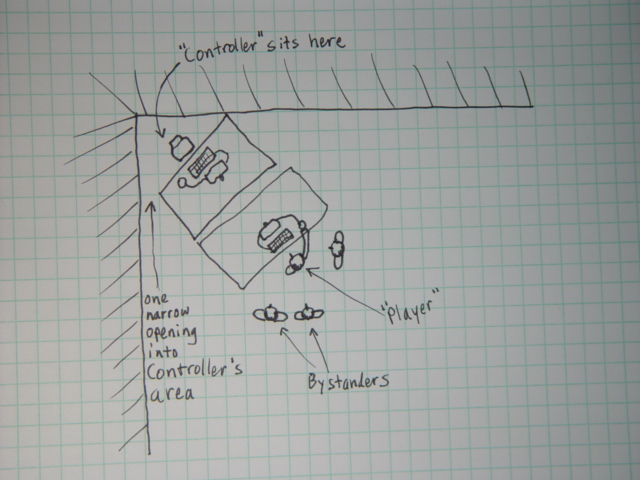 "Controller" sits here
"Player"
one
narrow
opening
into
Controller's
area
Bystanders